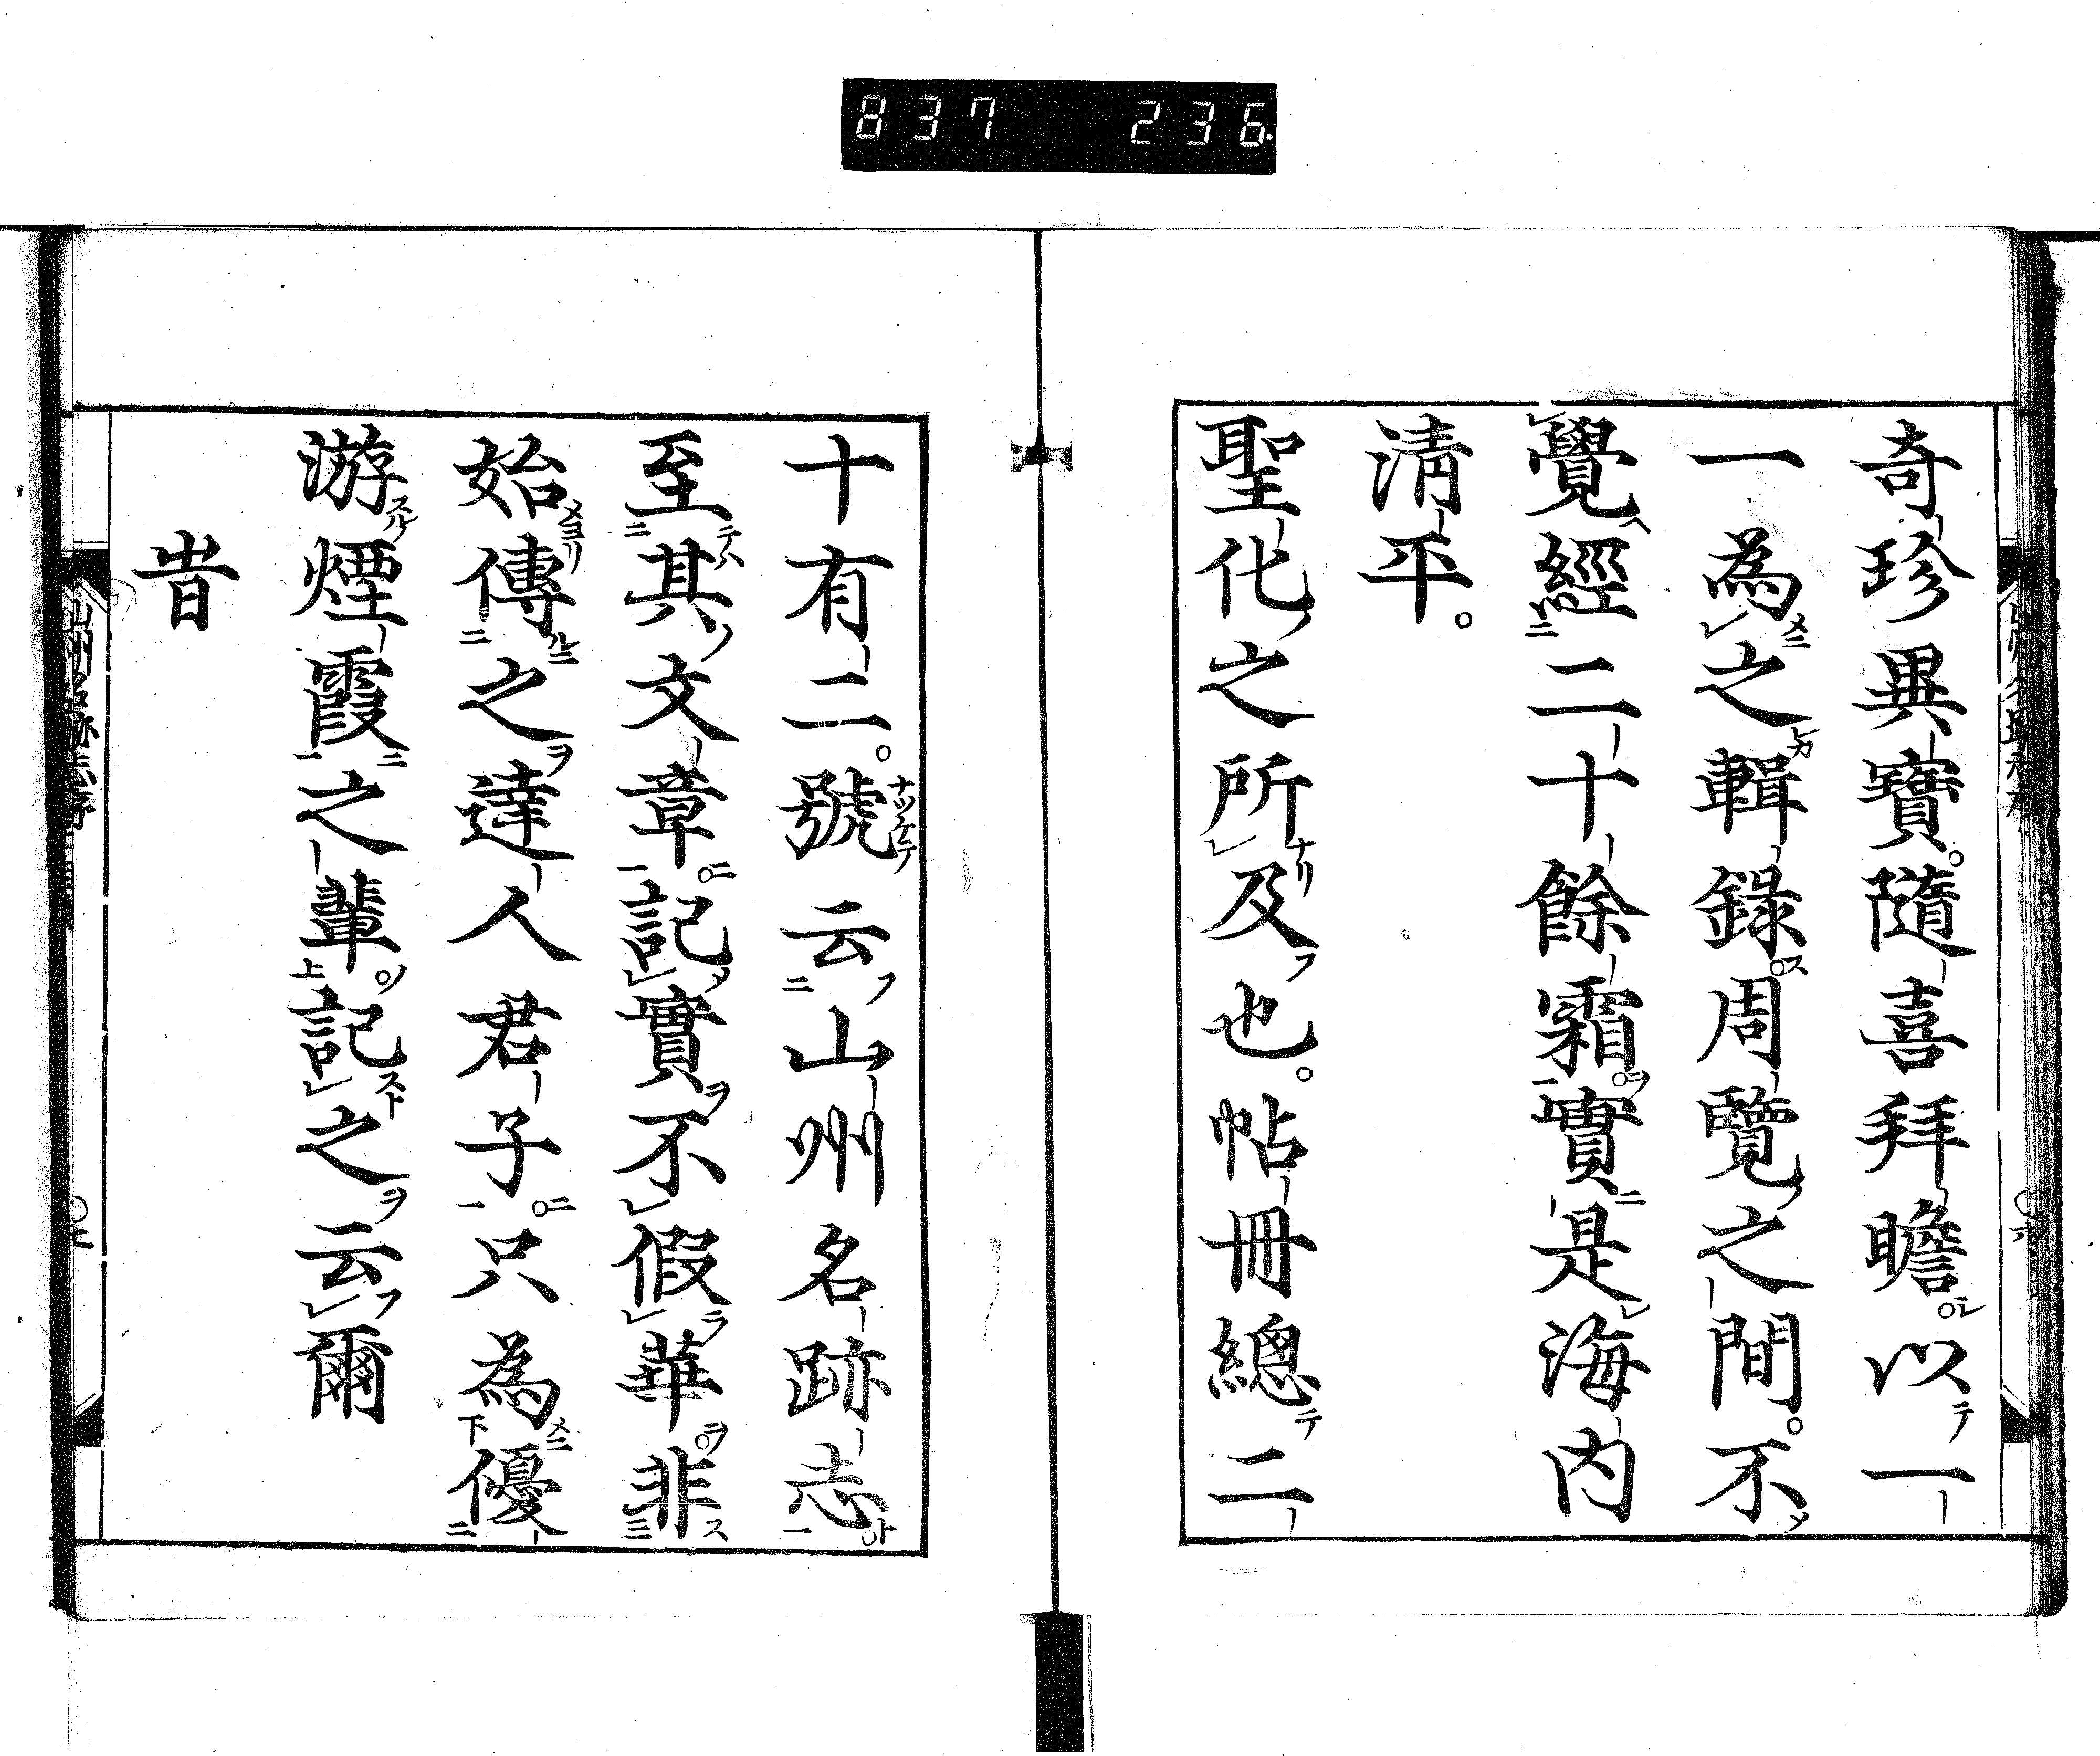 837 236
奇珍異寶。隨喜拜瞻。以一
一為之輯錄。周覽之間。不
覺經二十餘霜。實是海内
清平。
聖化之所及也。帖冊總二
十有二。號云山州名跡志。
至其文章。記實不假華。非
始傳之達人君子。只為優
游煙霞之輩。記之云爾
旹